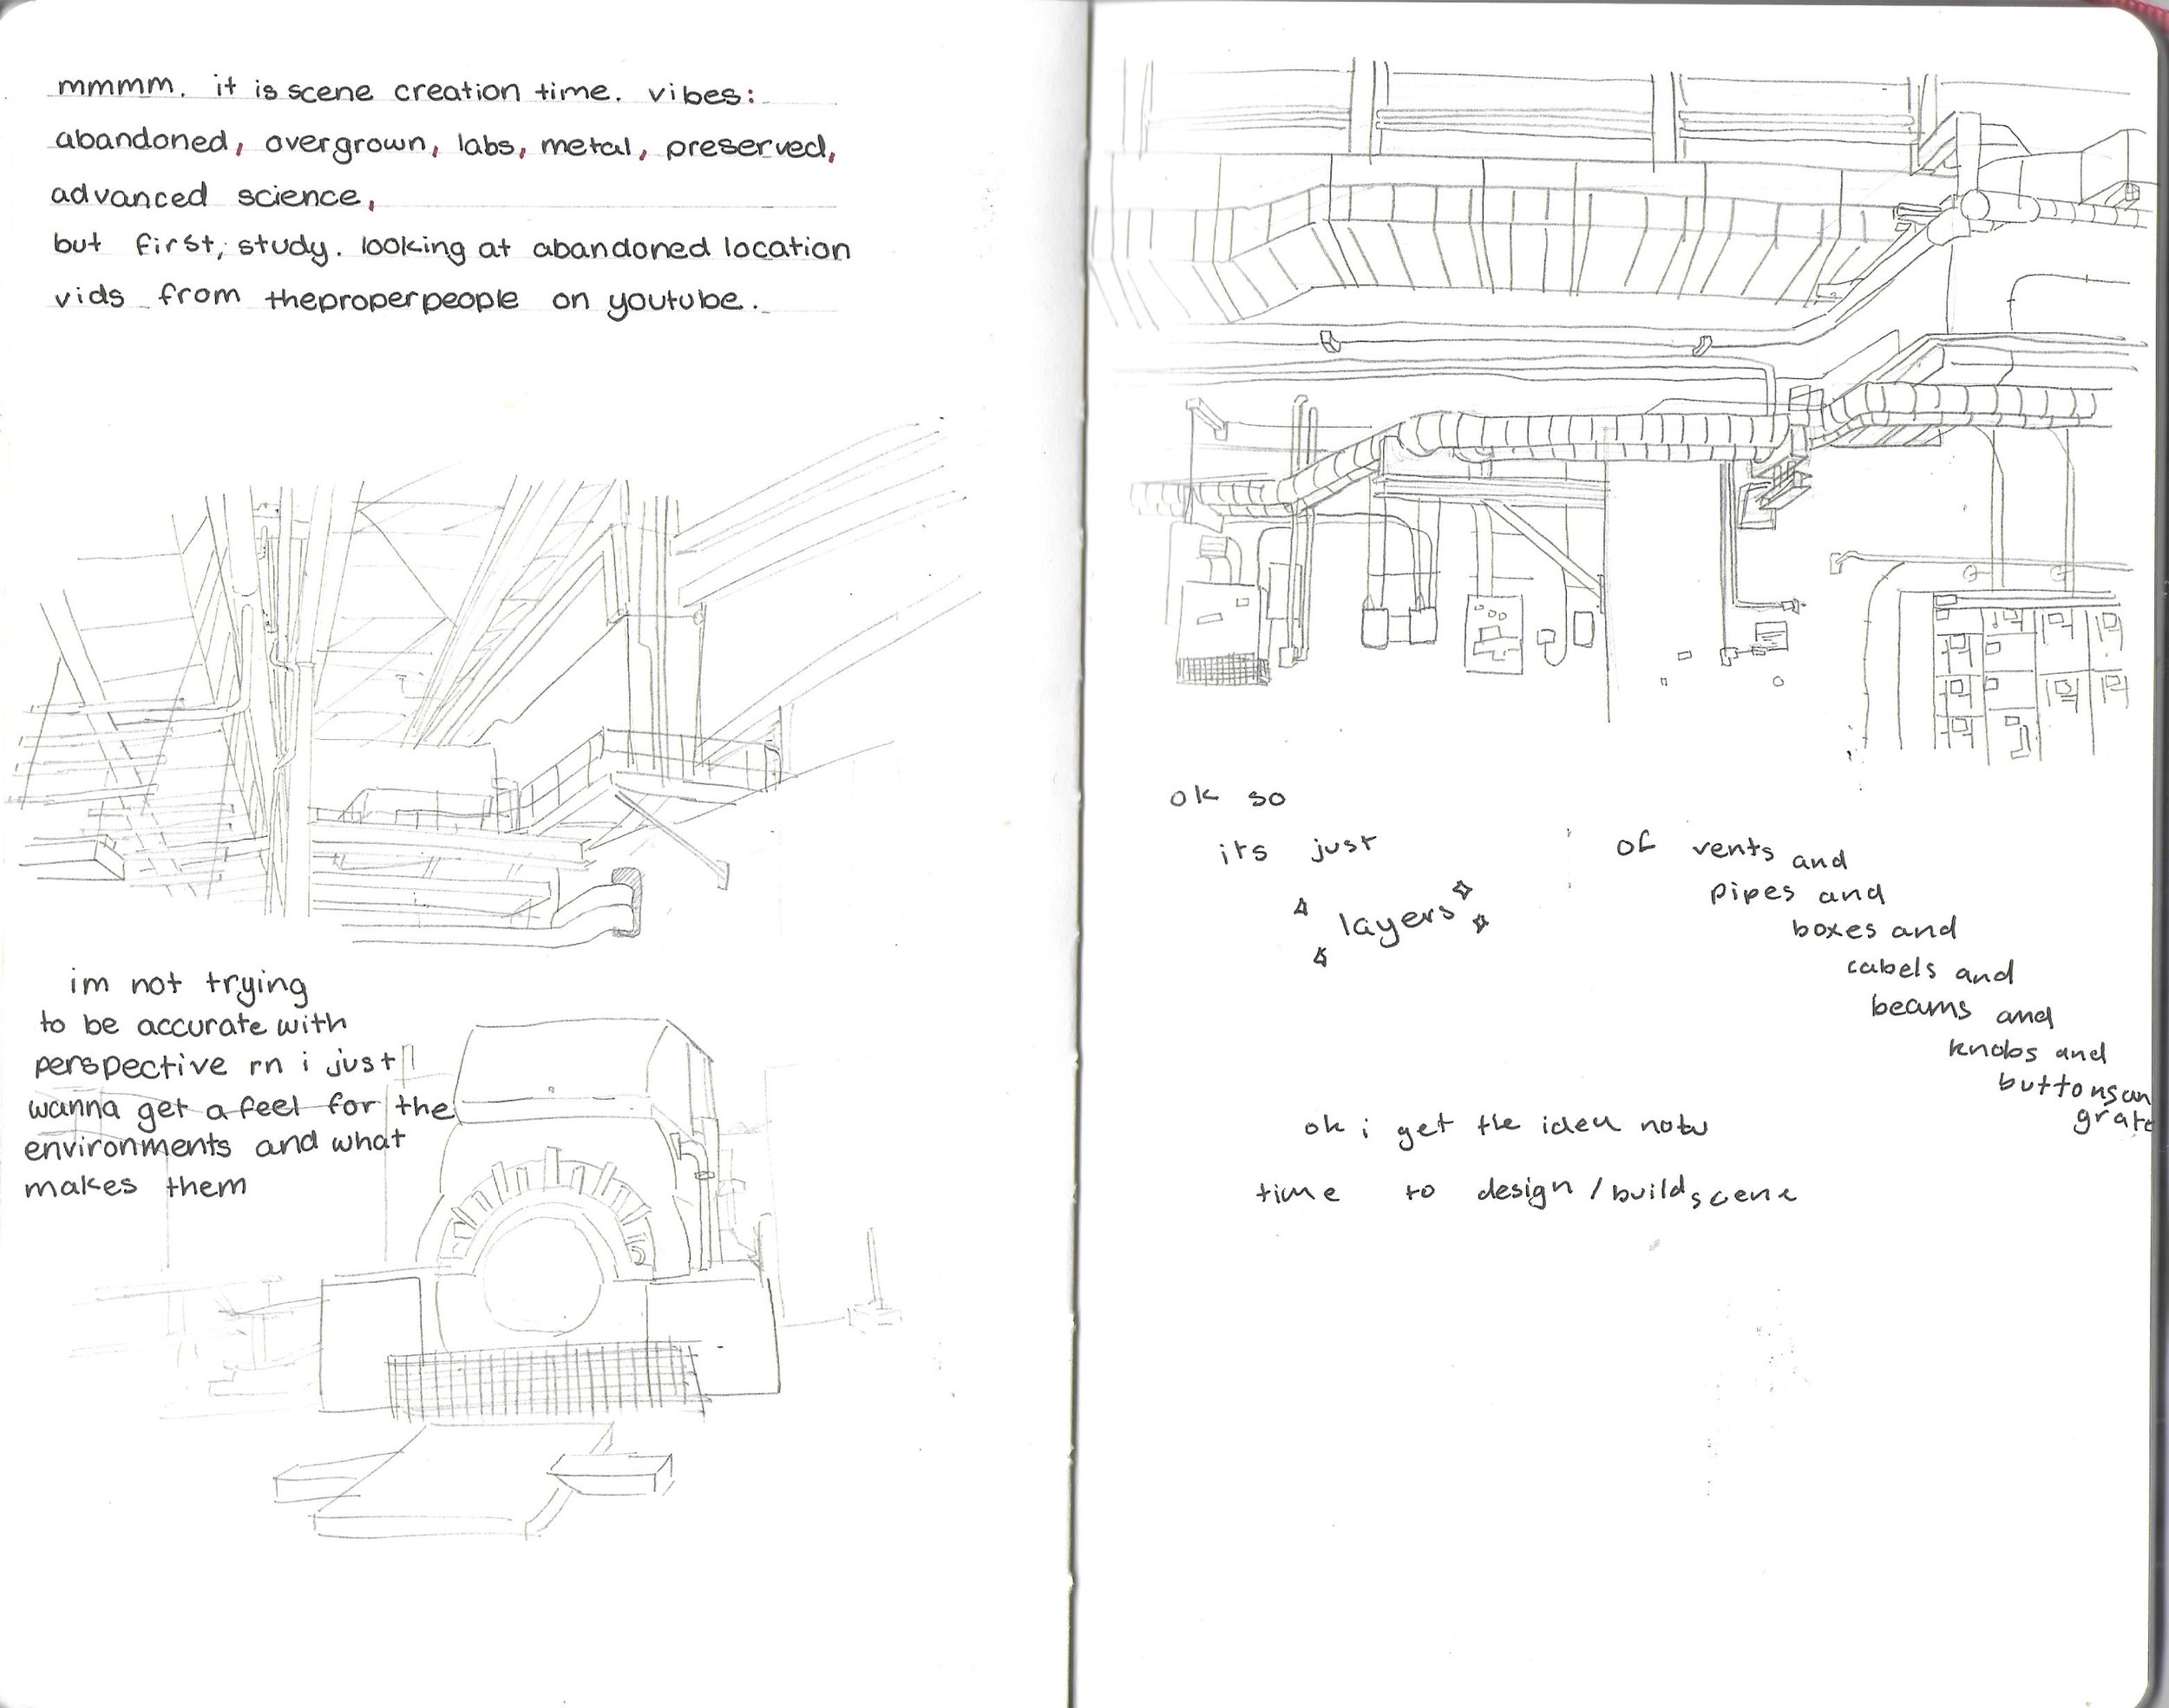 mmmm. it is scene creation time. vibes:
abandoned, overgrown, labs, metal, preserved,
advanced science,
but first, study. looking at abandoned location
vids from theproperpeople on youtube.
im not trying
to be accurate with
perspective rn i just
wanna get a feel for the
environments and what
makes them
ok so
its just
layers
of vents and
pipes and
boxes and
cabels and
beams and
knobs and
buttons an
grate
ok i get the idea now
time to design / build scene